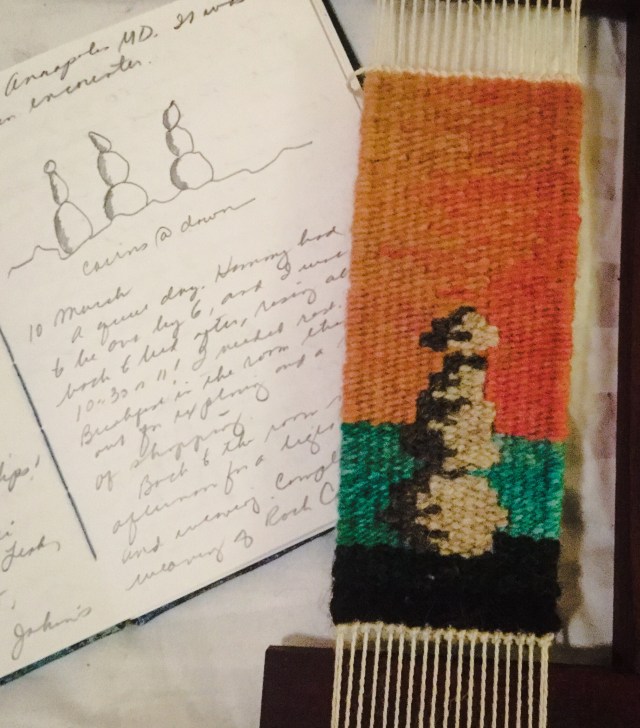 Annapolis MD. It was
an encounter.
Cairns @ dawn
10 March
A quiet day. Hommy had
to be out by 6, and I was
back to bed after, rising at
10:30 !! I needed rest.
Breakfast in the room then
out for exploring and a
of shopping.
Back to the room
afternoon for a
and weaving. Comple
weaving of Rock C
John's